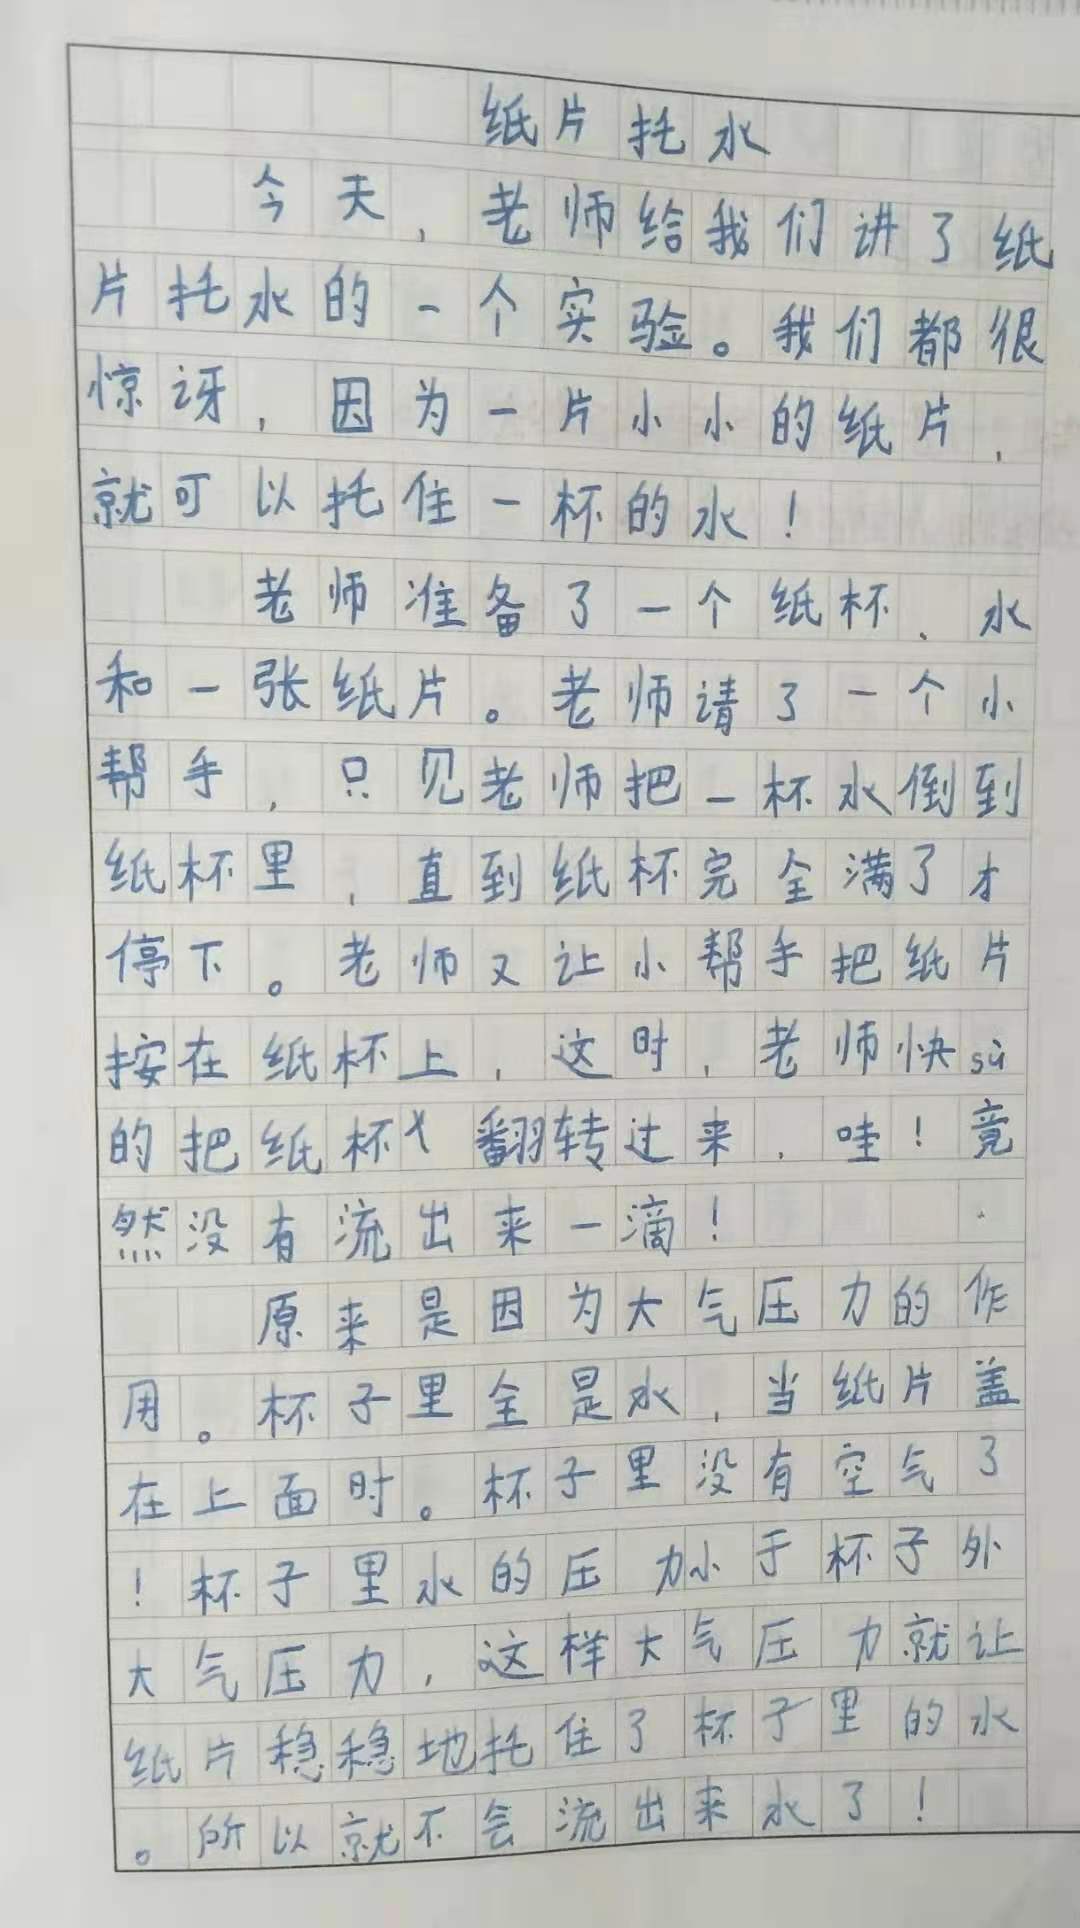 纸片托水
今天，老师给我们讲了纸
片托水的一个实验。我们都很
惊讶，因为一片小小的纸片，
就可以托住一杯的水！
老师准备了一个纸杯、水
和一张纸片。老师请了一个小
帮手，只见老师把一杯水倒到
纸杯里，直到纸杯完全满了才
停下。老师又让小帮手把纸片
按在纸杯上，这时，老师快sù
的把纸杯翻转过来，哇！竟
然没有流出来一滴！
原来是因为大气压力的作
用。杯子里全是水，当纸片盖
在上面时。杯子里没有空气了
！杯子里水的压力小于杯子外
大气压力，这样大气压力就让
纸片稳稳地托住了杯子里的水
。所以就不会流出来水了！